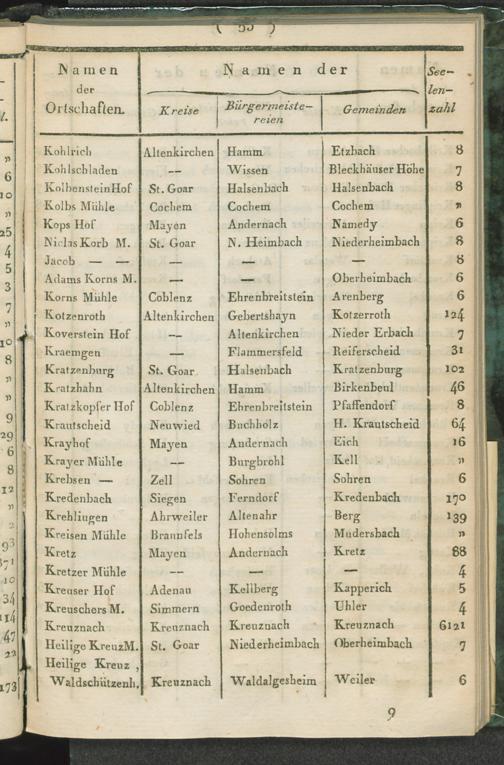 ( 53 )
Namen der Ortschaften. Namen der Kreise Bürgermeistereien Gemeinden See-len-zahl
Kohlrich Altenkirchen Hamm Etzbach 8
Kohlschladen — Wissen Bleckhäuser Höhe 7
Kolbenstein Hof St. Goar Halsenbach Halsenbach 8
Kolbs Mühle Cochem Cochem Cochem „
Kops Hof Mayen Andernach Namedy 6
Niclas Korb M. St. Goar N. Heimbach Niederheimbach 8
Jacob — — — — — 8
Adams Korns M. — — Oberheimbach 6
Korns Mühle Coblenz Ehrenbreitstein Arenberg 6
Kotzenroth Altenkirchen Gebertshayn Kotzerroth 124
Koverstein Hof — Altenkirchen Nieder Erbach 7
Kraemgen — Flammersfeld Reiferscheid 31
Kratzenburg St. Goar Halsenbach Kratzenburg 102
Kratzhahn Altenkirchen Hamm Birkenbeul 46
Kratzkopfer Hof Coblenz Ehrenbreitstein Pfaffendorf 8
Krautscheid Neuwied Buchholz H. Krautscheid 64
Krayhof Mayen Andernach Eich 16
Krayer Mühle — Burgbrohl Kell „
Krebsen — Zell Sohren Sohren 6
Kredenbach Siegen Ferndorf Kredenbach 170
Krehlingen Ahrweiler Altenahr Berg 139
Kreisen Mühle Braunfels Hohensolms Mudersbach „
Kretz Mayen Andernach Kretz 88
Kretzer Mühle — — — 4
Kreuser Hof Adenau Kellberg Kapperich 5
Kreuschers M. Simmern Goedenroth Uhler 4
Kreuznach Kreuznach Kreuznach Kreuznach 6121
Heilige Kreuz M. St. Goar Niederheimbach Oberheimbach 7
Heilige Kreuz,
Waldschützenh. Kreuznach Waldalgesheim Weiler 6
9